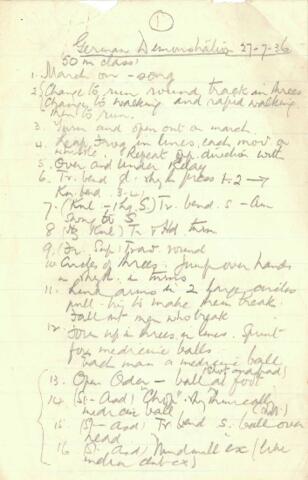 1
German Demonstration 27-7-36
50 m class:
1. March on - song
2. Change to run round track in threes
Change to walking and rapid walking
then to run.
3. Turn and open out on march.
4. Leap Frog in lines, each mov. on
Repeat opp. direction with
5. Over and Under Relay
6. Tr. bend d. press 1-2
Kn. bend 3-4
7. Tr. bend s. - Arm
Swing to S
8. Tr turn
9. Trav. round
10. Circles of threes. Jump over hands
in
11. Link arms in 2 large circles
pull - try to make men break.
Fall out men who break
12. Form up in threes in lines. Sprint
for medicine balls
each man a medicine ball
13. Open Order - ball at foot
14. (St - Asd) Chop. Rhythmically
medicine ball
15. (St - Asd) Tr bend s. ball over
head
16. (St - Asd) Windmill ex (like
Indian club ex)